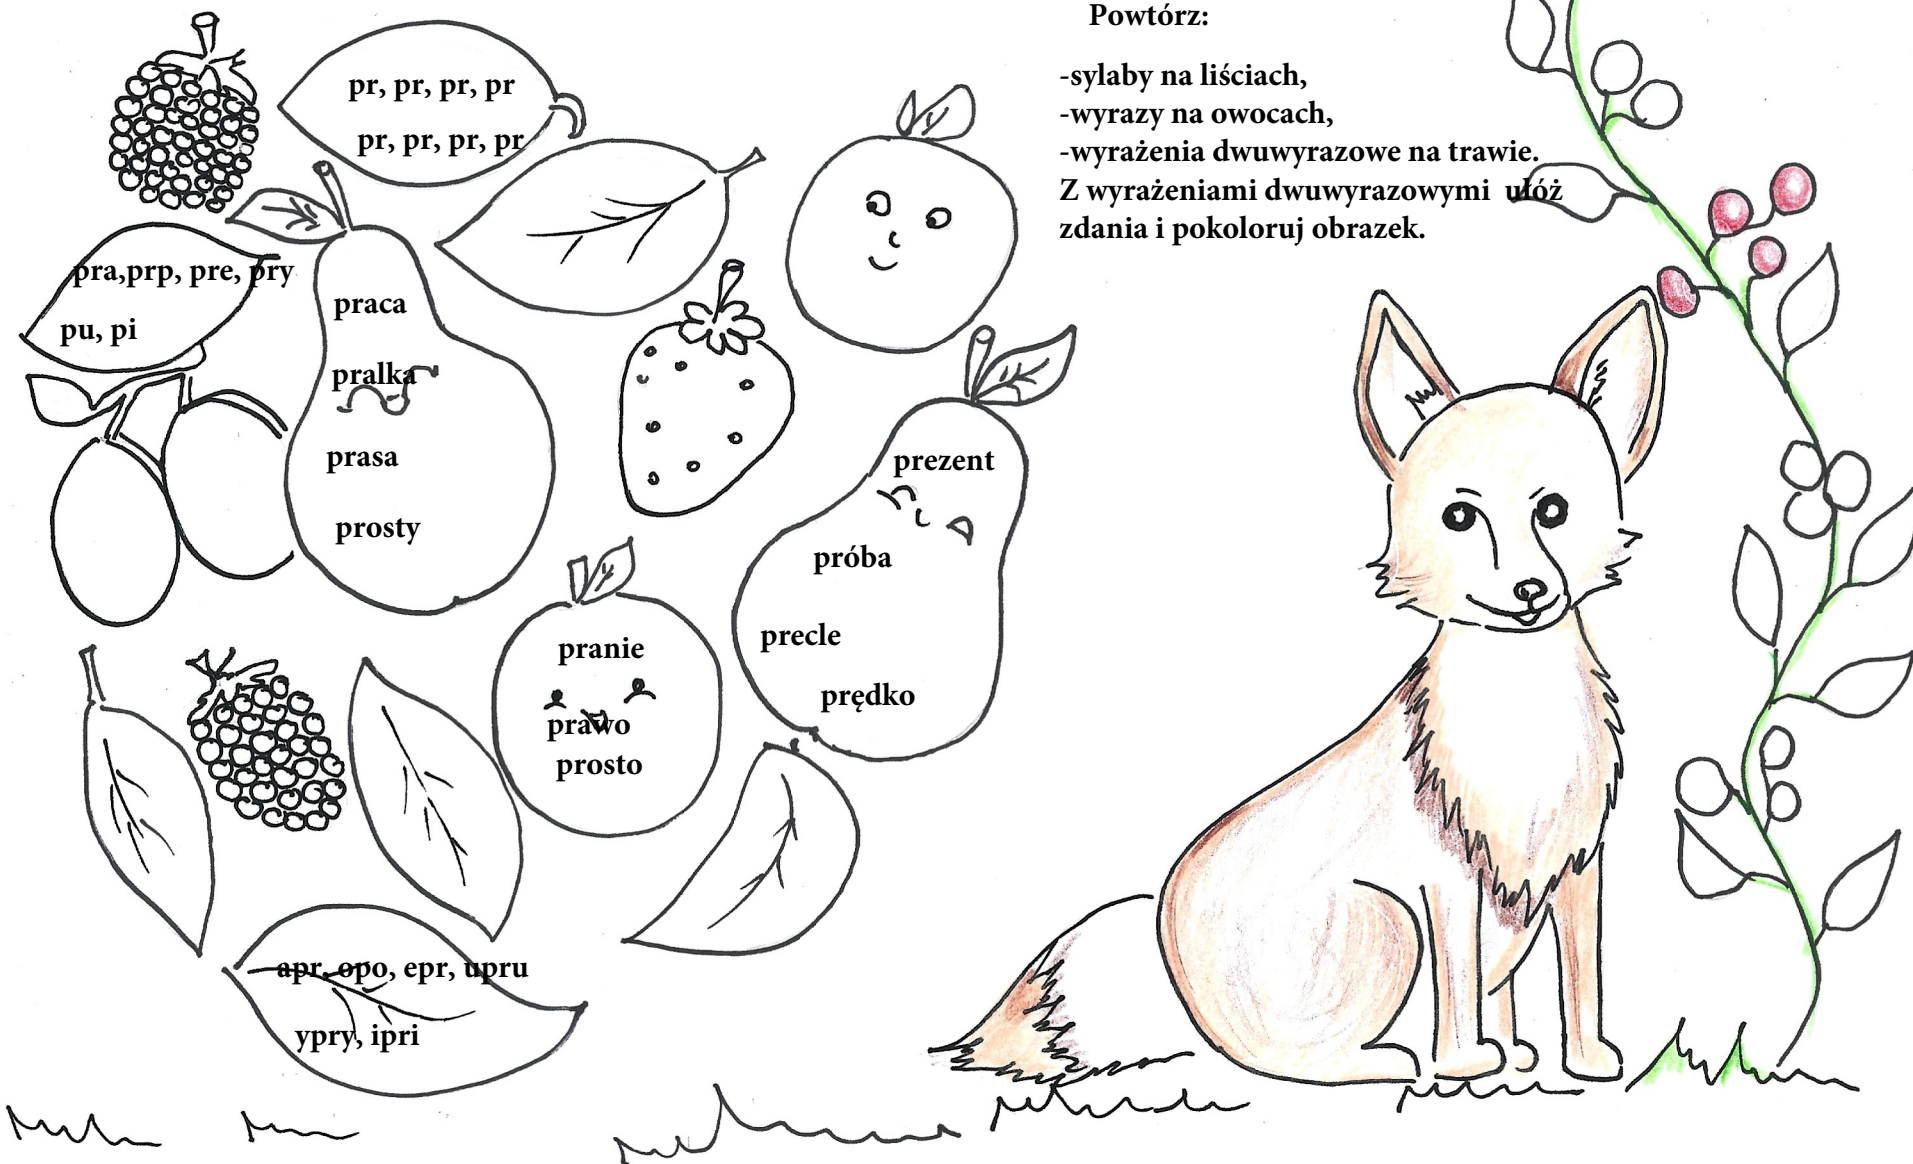 Powtórz:
-sylaby na liściach,
-wyrazy na owocach,
-wyrażenia dwuwyrazowe na trawie.
Z wyrażeniami dwuwyrazowymi ułóż
zdania i pokoloruj obrazek.
pr, pr, pr, pr
pr, pr, pr, pr
pra,prp, pre, pry
pu, pi
praca
pralka
prasa
prosty
prezent
próba
precle
prędko
pranie
prawo
prosto
apr, opo, epr, upru
ypry, ipri